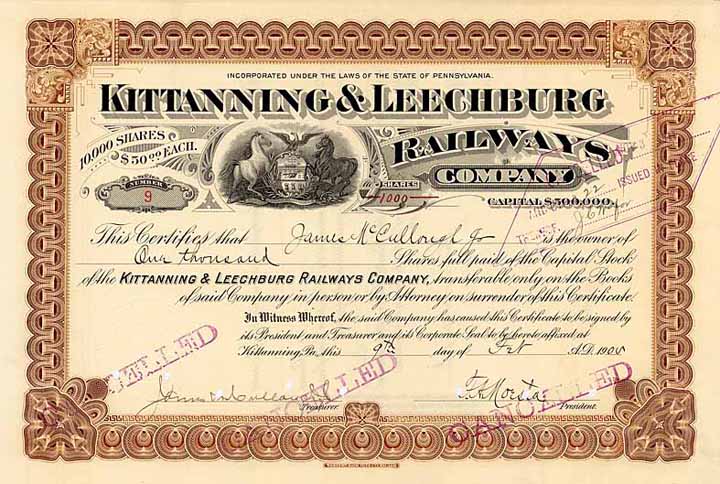 INCORPORATED UNDER THE LAWS OF THE STATE OF PENNSYLVANIA.
KITTANNING & LEECHBURG
RAILWAYS
COMPANY
10,000 SHARES
$50.00 EACH.
NUMBER
9
SHARES
1000
CAPITAL $500,000.
22
ISSUED
This Certifies that James McCullough Jr is the owner of
One thousand Shares full paid of the Capital Stock
of the KITTANNING & LEECHBURG RAILWAYS COMPANY, transferable only on the Books
of said Company in person or by Attorney on surrender of this Certificate.
In Witness Whereof, the said Company has caused this Certificate to be signed by
its President and Treasurer and its Corporate Seal to be hereto affixed at
Kittanning, Pa. this 9th day of Feb A.D. 190
CANCELLED
CANCELLED
CANCELLED
James McCullough Jr
Treasurer.
President.